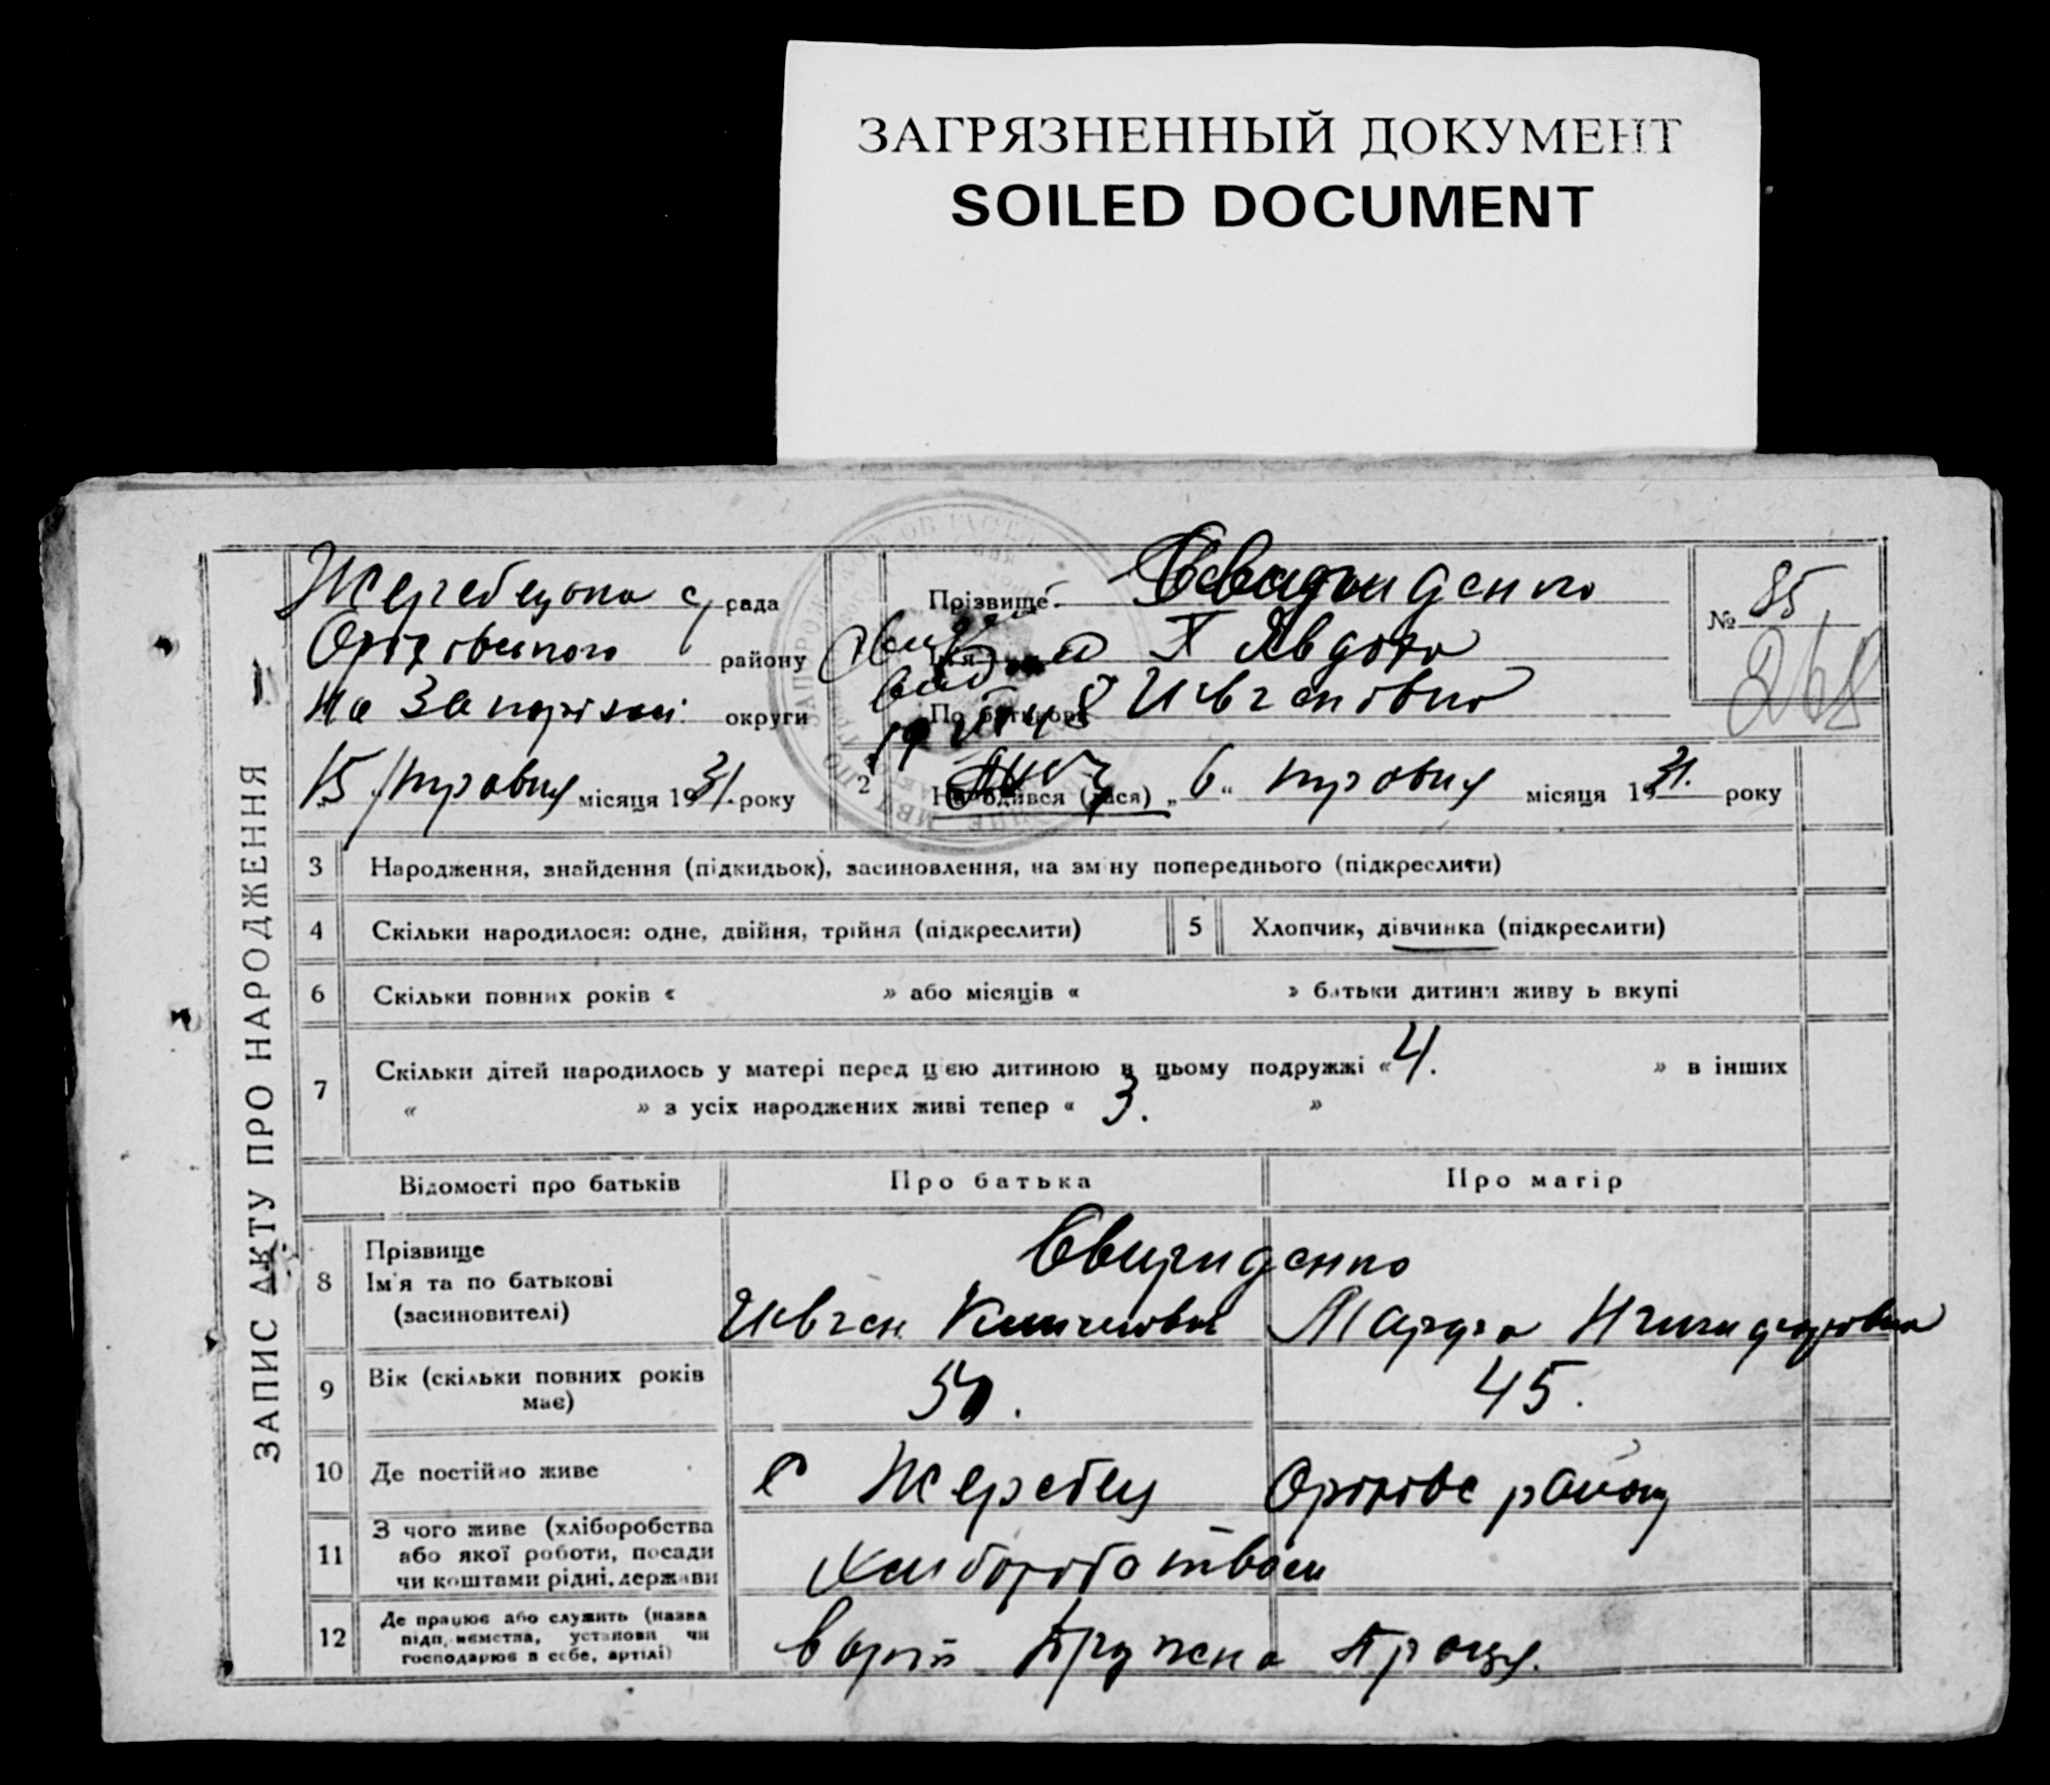 ЗАГРЯЗНЕННЫЙ ДОКУМЕНТ
SOILED DOCUMENT
ЗАПИС АКТУ ПРО НАРОДЖЕННЯ
Жеребецька с/рада
Оріхівського району
На Запоріжжі округи
15 травня місяця 1931. року
Прізвище Свириденко
Ім'я Явдоха
По батькові Ивгенівна
№ 85
268
2
Народився (лася) „6“ травня місяця 1931. року
3 Народження, знайдення (підкидьок), засиновлення, на зміну попереднього (підкреслити)
4 Скільки народилося: одне, двійня, трійня (підкреслити)
5 Хлопчик, дівчинка (підкреслити)
6 Скільки повних років « » або місяців « » батьки дитини живу ь вкупі
7 Скільки дітей народилось у матері перед цією дитиною в цьому подружжі «4. » в інших
« » з усіх народжених живі тепер « 3. »
Відомості про батьків Про батька Про матір
8 Прізвище
Ім'я та по батькові
(засиновителі)
Свириденко
Ивген Мархва
9 Вік (скільки повних років має) 50. 45.
10 Де постійно живе с Жеребец Оріхівс району
11 З чого живе (хліборобства
або якої роботи, посади
чи коштами рідні, держави
Хлиборобством
12 Де працює або служить (назва
підп,иємства, установи чи
господарює в себе, артілі)
в артіл Дружена Праця.